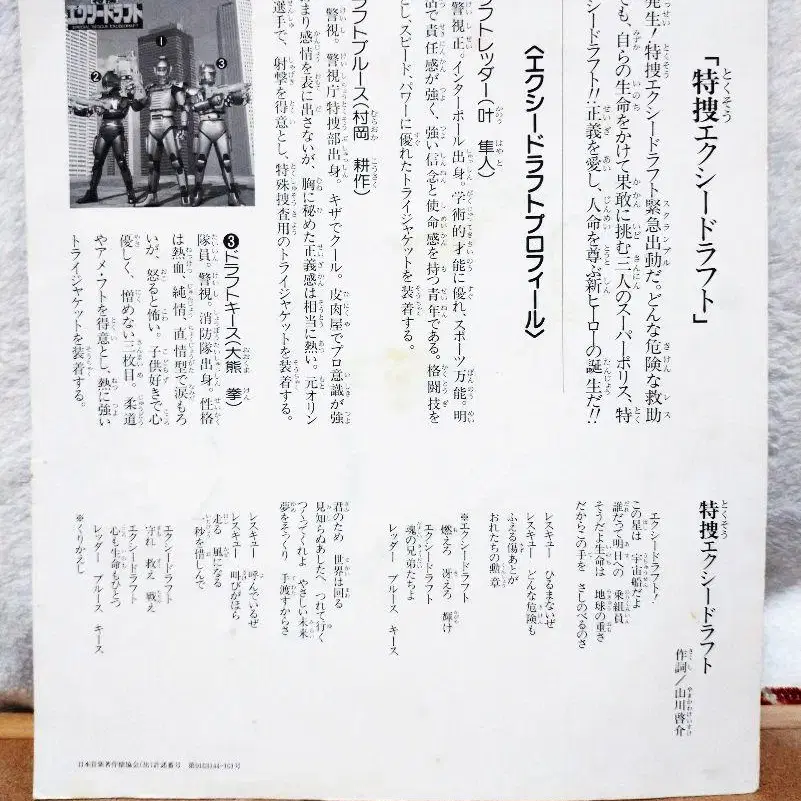 「特捜エクシードラフト」
発生！特捜エクシードラフト緊急出動だ。どんな危険な救助
ても、自らの生命をかけて果敢に挑む三人のスーパーポリス、特
シードラフト!!正義を愛し、人命を尊ぶ新ヒーローの誕生だ!!
〈エクシードラフトプロフィール〉
フトレッダー(叶 隼人)
警視正。インターポール出身。学術的才能に優れ、スポーツ万能。明
活で責任感が強く、強い信念と使命感を持つ青年である。格闘技を
とし、スピード、パワーに優れたトライジャケットを装着する。
ラフトブルース(村岡 耕作)
警視。警視庁特捜部出身。キザでクール。皮肉屋でプロ意識が強
まり感情を表に出さないが、胸に秘めた正義感は相当に熱い。元オリン
選手で、射撃を得意とし、特殊捜査用のトライジャケットを装着する。
エクシードラフト
❶
❷
❸
❸ドラフトキース(大熊 拳)
隊員。警視。消防隊出身。性格
は熱血、純情、直情型で涙もろ
いが、怒ると怖い。子供好きで心
優しく、憎めない三枚目。柔道
やアメ・フトを得意とし、熱に強い
トライジャケットを装着する。
特捜エクシードラフト
作詞／山川啓介
エクシードラフト！
この星は 宇宙船だよ
誰だって明日への 乗組員
そうだよ生命は 地球の重さ
だからこの手を さしのべるのさ
レスキュー ひるまないぜ
レスキュー どんな危険も
ふえる傷あとが
おれたちの勲章
※エクシードラフト
燃えろ 冴えろ 輝け
エクシードラフト
魂の兄弟たちよ
レッダー ブルース キース
君のため 世界は回る
見知らぬあしたへ つれて行く
つくってくれよ やさしい未来
夢をそっくり 手渡すからさ
レスキュー 呼んでいるぜ
レスキュー 叫びがほら
走る 風になる
秒を惜しんで
エクシードラフト
守れ 救え 戦え
エクシードラフト
心も生命もひとつ
レッダー ブルース キース
※くりかえし
日本音楽著作権協会(出)許諾番号